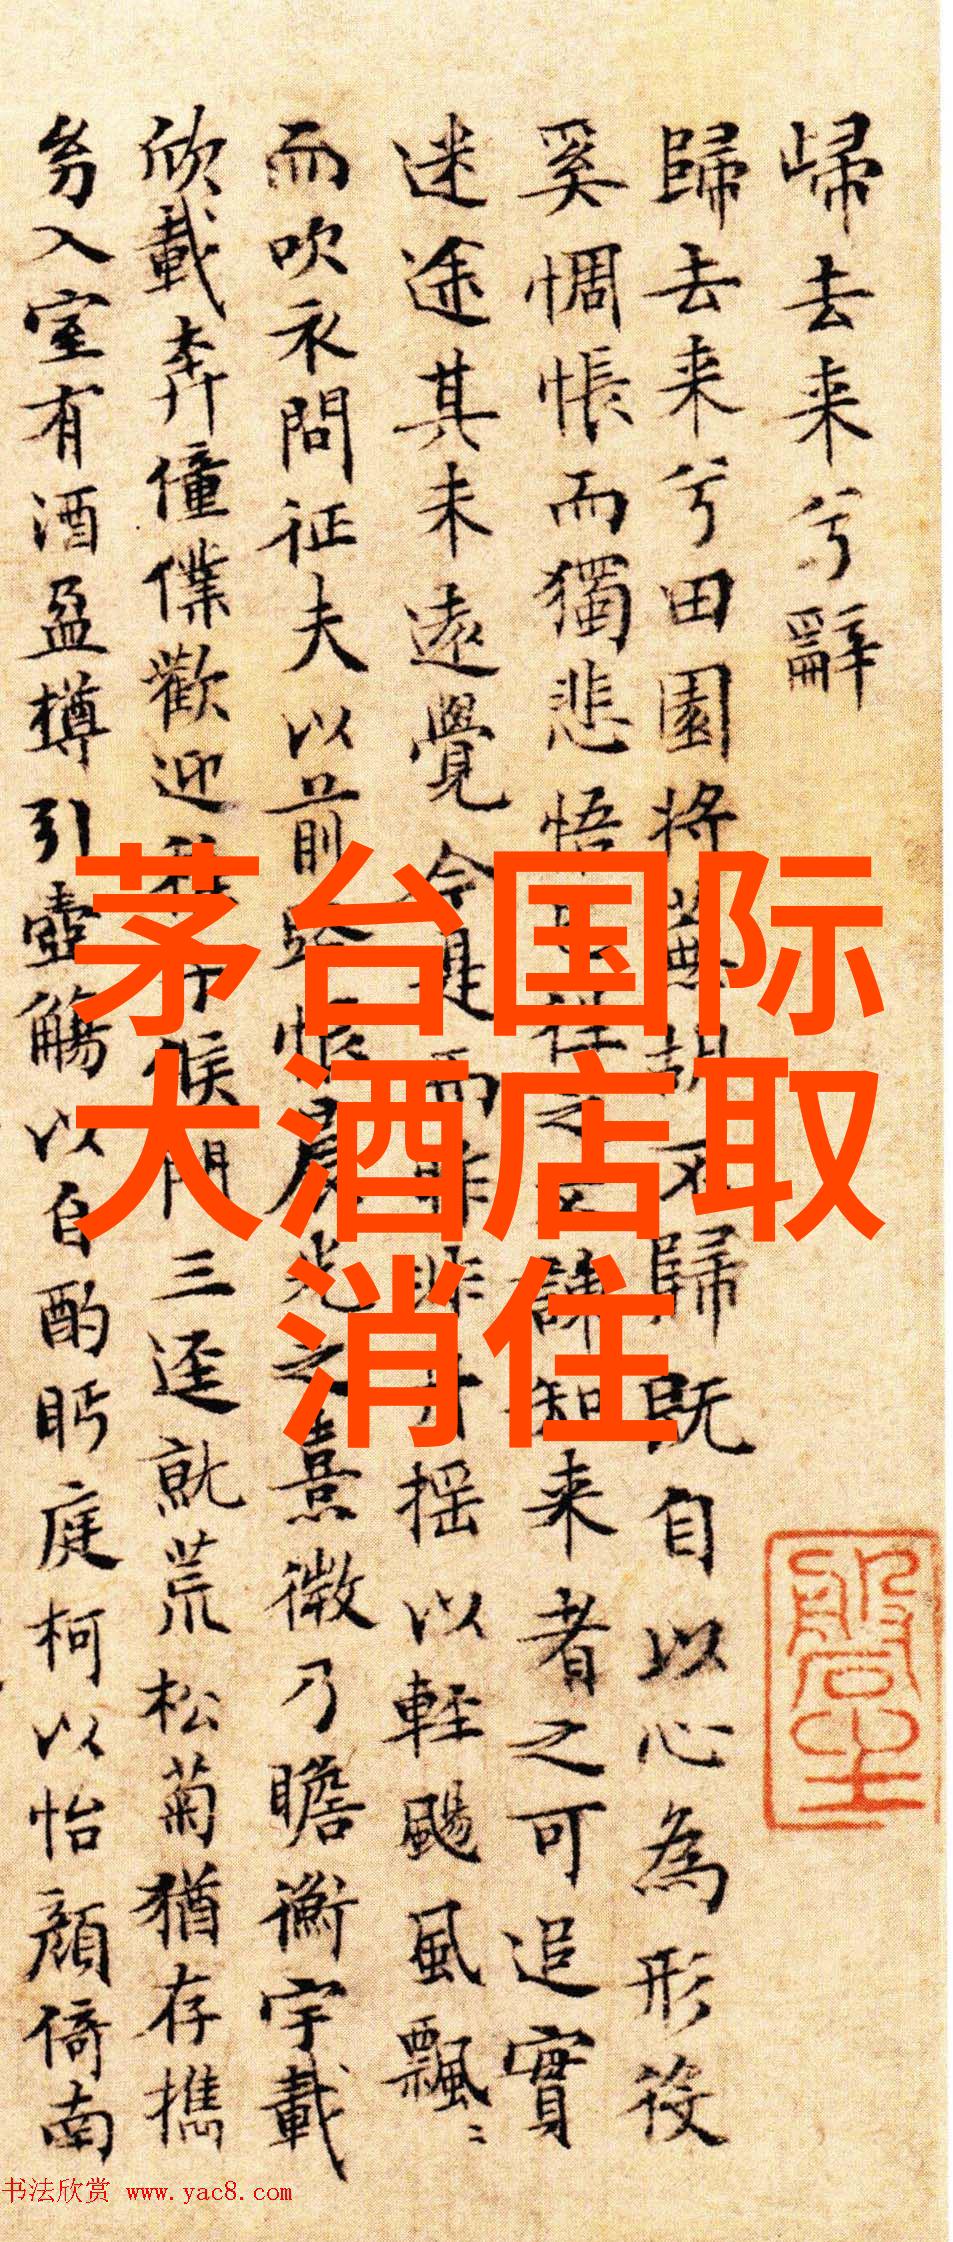 歸去来兮辭
歸去来兮田園将蕪胡不歸既自以心為形役
奚惆悵而獨悲悟已往之不諫知来者之可追實
迷途其未遠覺今是而昨非舟揺以軽颺風飄〻
而吹衣問征夫以前路恨晨光之熹微乃瞻衡宇載
欣載奔僮僕歡迎稚子候門三逕就荒松菊猶存携
幼入室有酒盈樽引壺觴以自酌眄庭柯以怡顔倚南
茅台国际
大酒店取
消住
书法欣赏 www.yac8.com